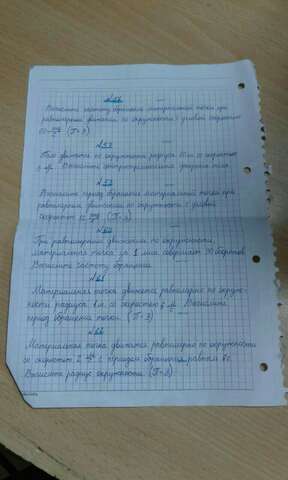 Вычислить частоту обращения материальной точки при
равномерном движении по окружности с угловой скоростью
(П=3)
Тело движется по окружности радиуса со скоростью
Вычислить центростремительное ускорение тела.
Вычислить период обращения материальной точки при
равномерном движении по окружности с угловой
скоростью (П=3)
При равномерном движении по окружности,
материальная точка за 1 мин. совершает 30 оборотов.
Вычислить частоту обращения.
№61
Материальная точка движется равномерно по окруж-
ности радиуса 1 м. со скоростью Вычислить
период обращения точки. (П=3)
Материальная точка движется равномерно по окружности
со скоростью 2 с периодом обращения равном 6с.
Вычислить радиус окружности (П=3)